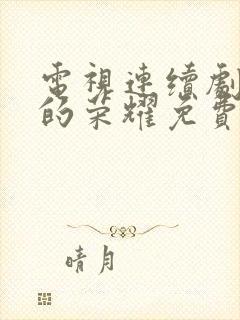 電視連續劇
的榮耀免費
晴月